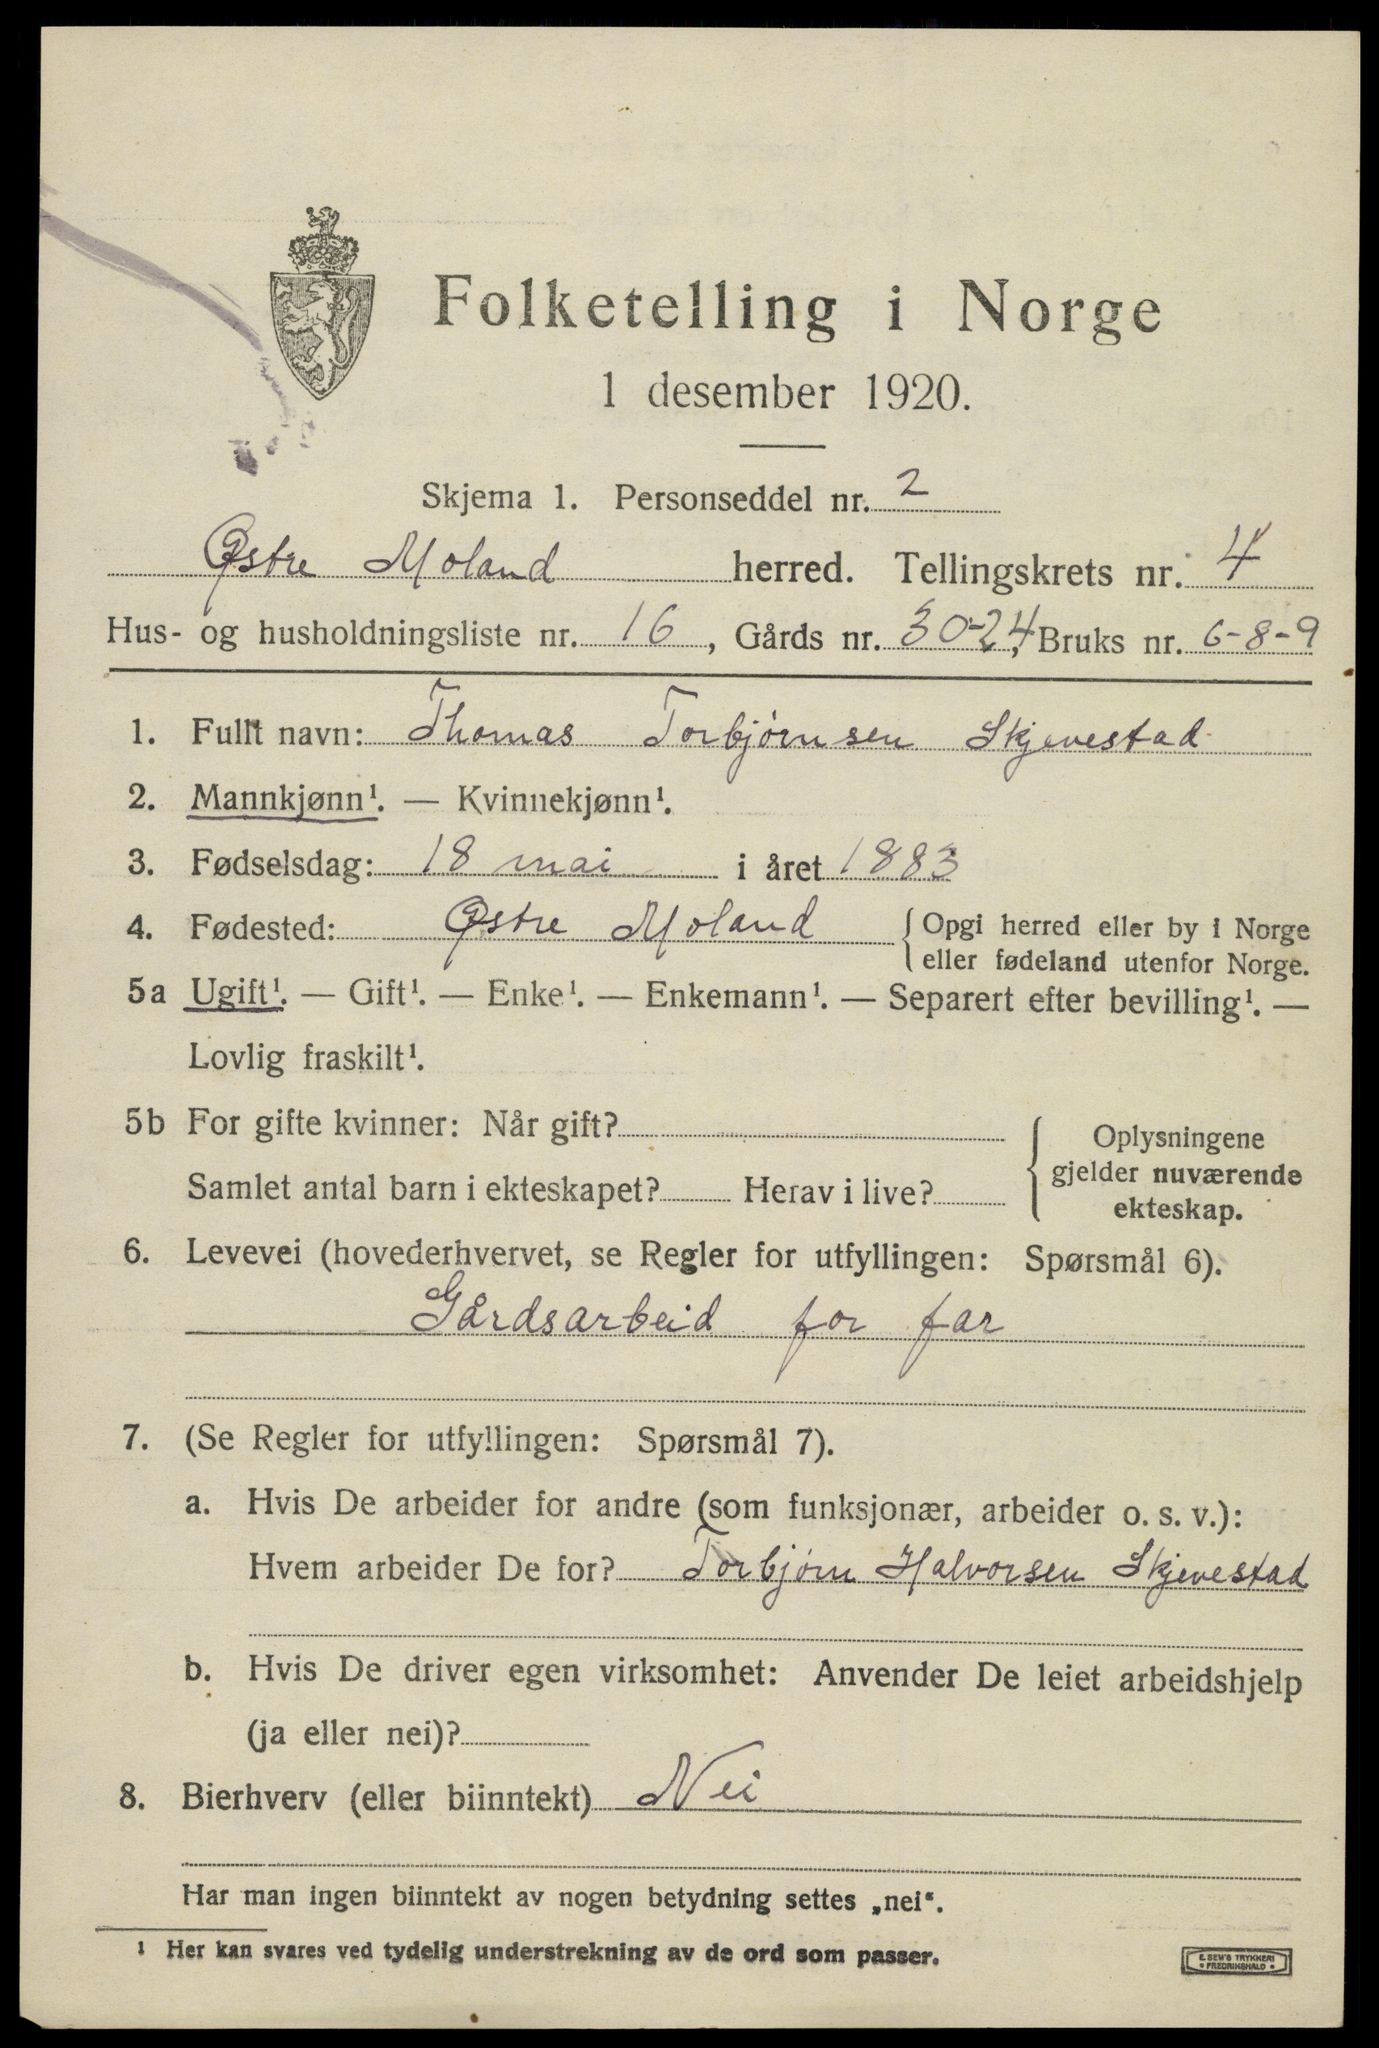 Folketelling i Norge
1 desember 1920.
Skjema 1. Personseddel nr. 2
Østre Moland herred. Tellingskrets nr. 4
Hus- og husholdningsliste nr. 16, Gårds nr. 30-24, Bruks nr. 6-8-9
1. Fullt navn: Thomas Torbjørnsen Skjevestad
2. Mannkjønn¹. — Kvinnekjønn¹.
3. Fødselsdag: 18 mai i året 1883
4. Fødested: Østre Moland { Opgi herred eller by i Norge
eller fødeland utenfor Norge.
5a Ugift¹. — Gift¹. — Enke¹. — Enkemann¹. — Separert efter bevilling¹. —
Lovlig fraskilt¹.
5b For gifte kvinner: Når gift?
Samlet antal barn i ekteskapet? Herav i live?
Oplysningene
gjelder nuværende
ekteskap.
6. Levevei (hovederhvervet, se Regler for utfyllingen: Spørsmål 6).
Gårdsarbeid for far
7. (Se Regler for utfyllingen: Spørsmål 7).
a. Hvis De arbeider for andre (som funksjonær, arbeider o. s. v.):
Hvem arbeider De for? Torbjørn Halvorsen Skjevestad
b. Hvis De driver egen virksomhet: Anvender De leiet arbeidshjelp
(ja eller nei)?
8. Bierhverv (eller biinntekt) Nei
Har man ingen biinntekt av nogen betydning settes „nei“.
¹ Her kan svares ved tydelig understrekning av de ord som passer.
E. SEM'S TRYKKERI
FREDRIKSHALD